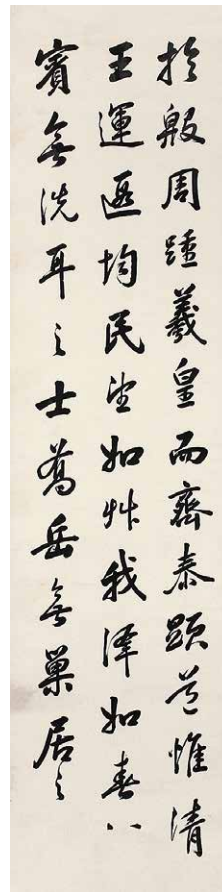 於殷周踵羲皇而齊泰顯道惟清
王運遐均民望如艸我澤如春八
賓無洗耳之士喬岳無巢居之